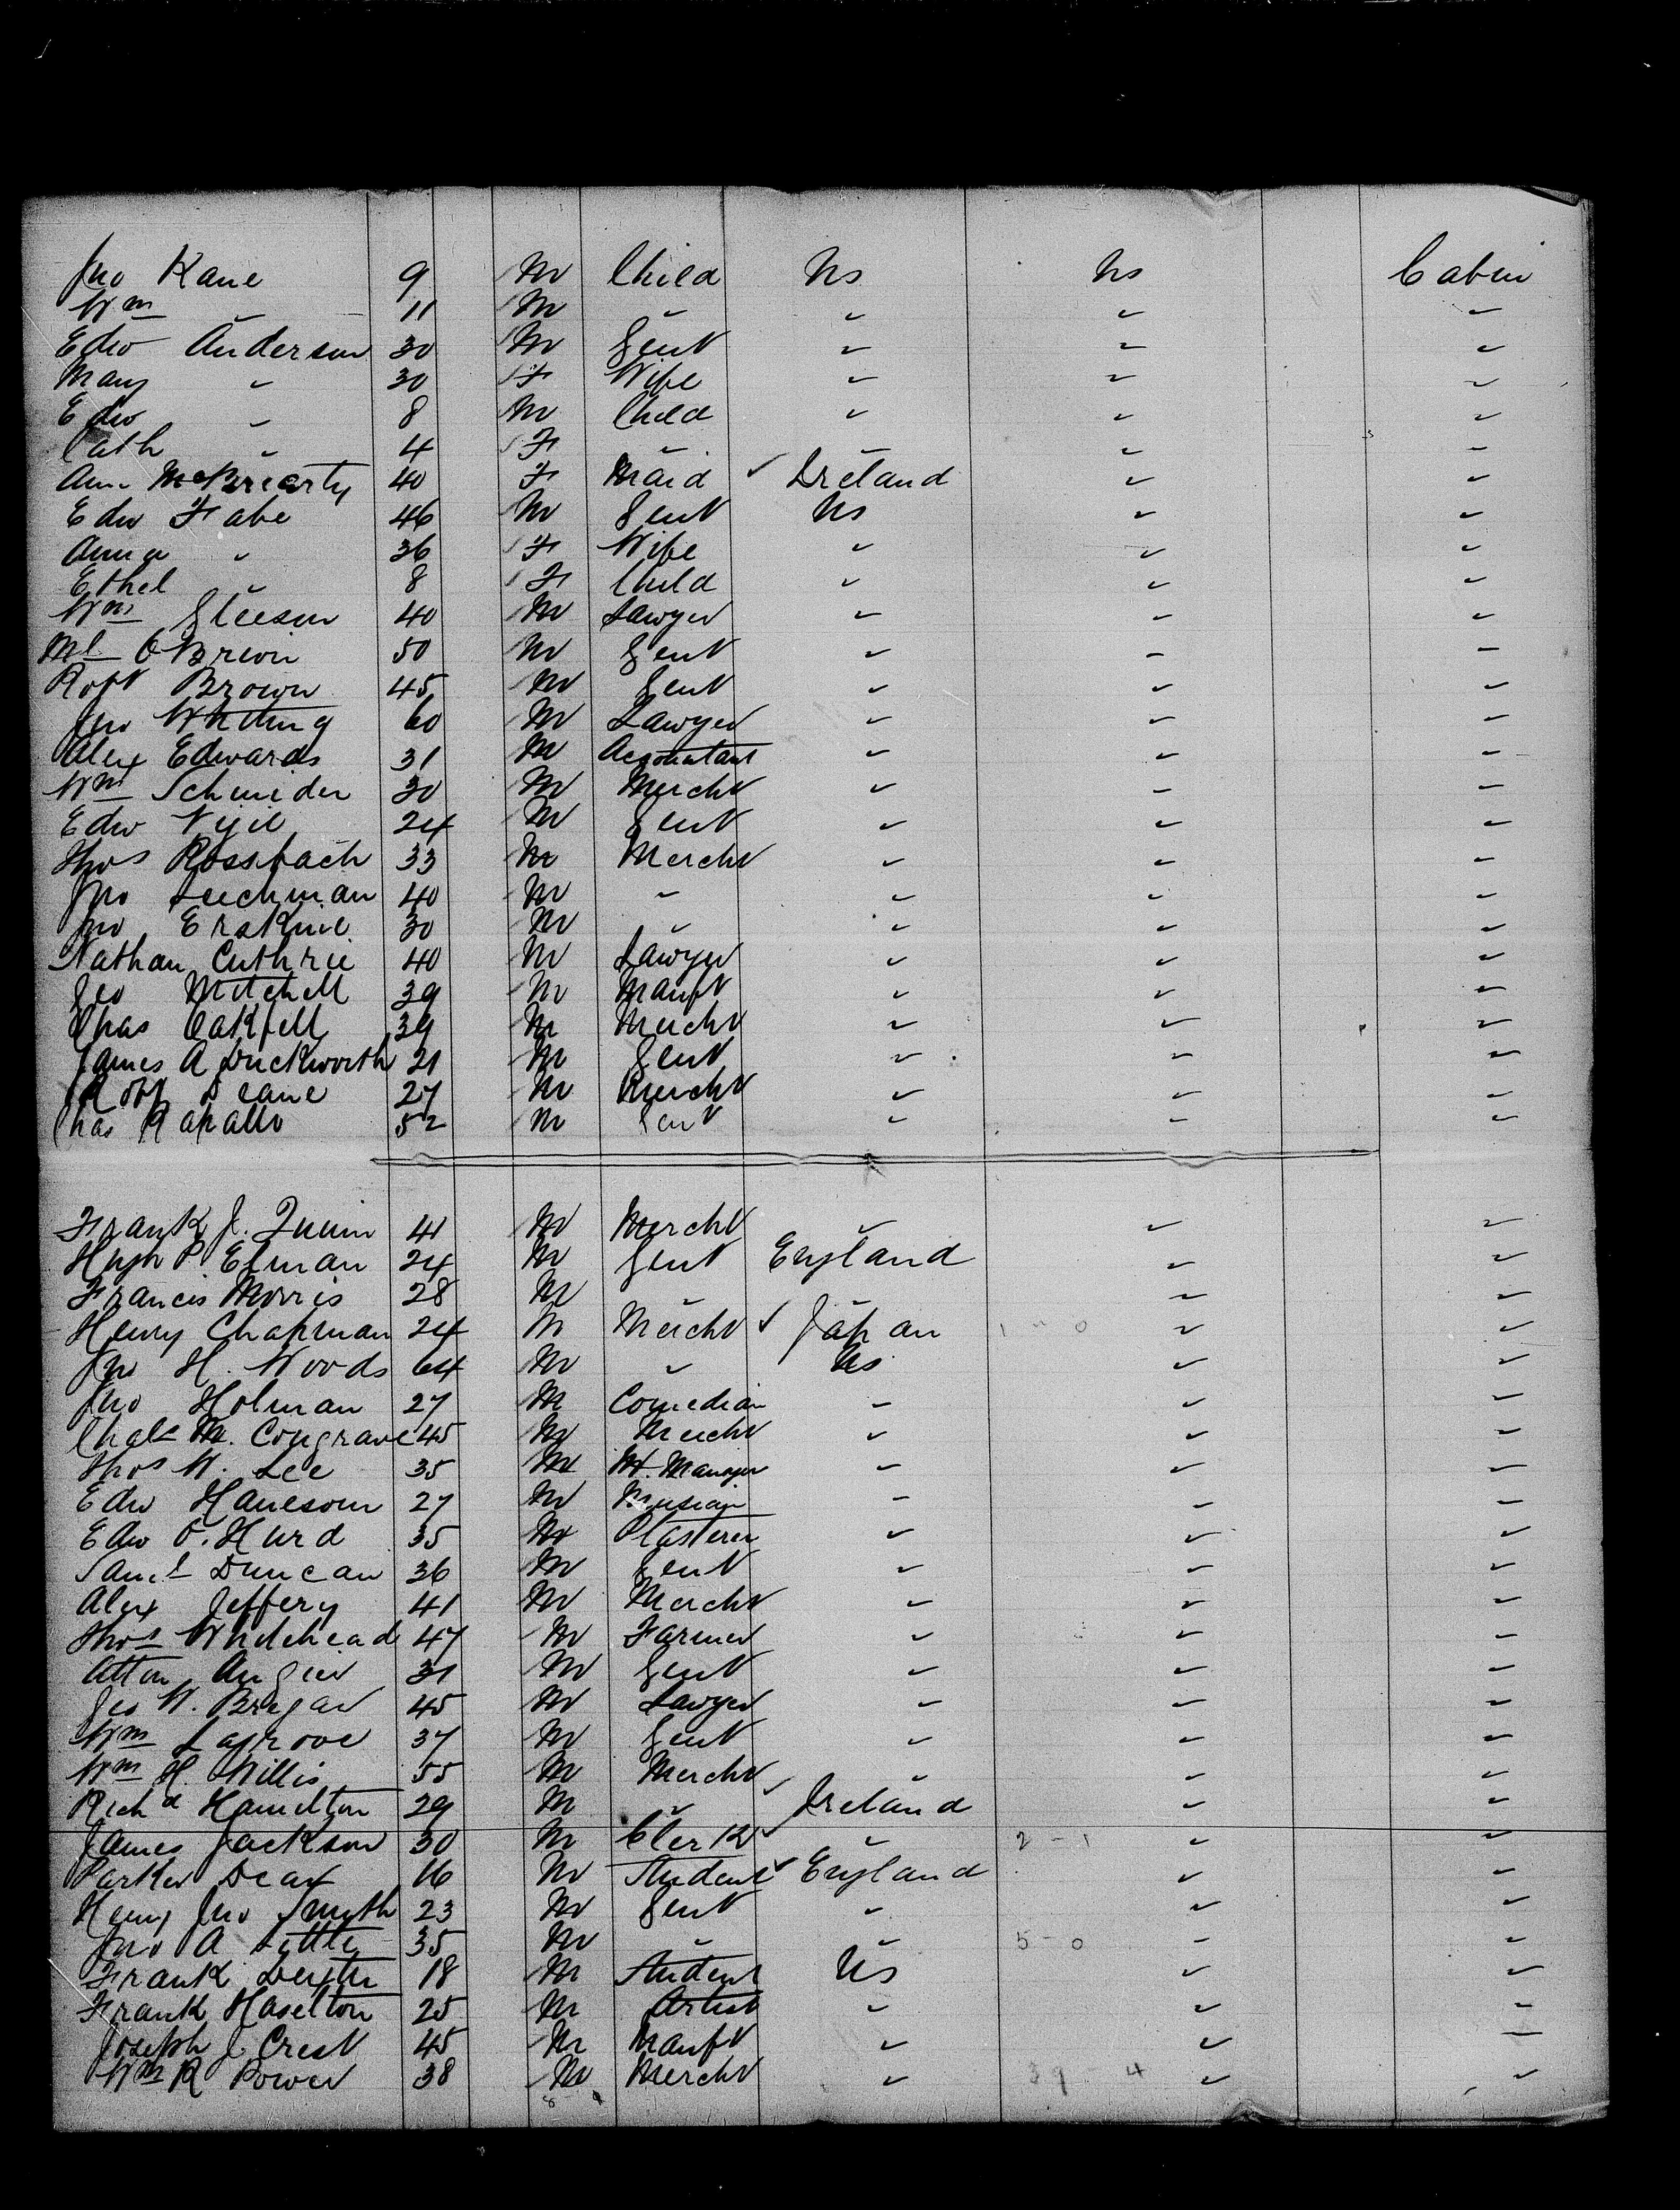 Jno Kane 9 M Child Us Us Cabin
Wm " 11 M " " " "
Edw Anderson 30 M Gent " " "
Mary " 30 F Wife " " "
Edw " 8 M Child " " "
Cath " 4 F " " " "
Ann McBrearty 40 F Maid ✓ Ireland " "
Edw Fabe 46 M Gent Us " "
Anna " 36 F Wife " " "
Ethel " 8 F Child " " "
Wm Gleeson 40 M Lawyer " " "
Ml O'Breion 50 M Gent " " "
Robt Brown 45 M Gent " " "
Jno Whiting 60 M Lawyer " " "
Alex Edwards 31 M Accountant " " "
Wm Schneider 30 M Mercht " " "
Edw Vigil 24 M Gent " " "
Thos Rossbach 33 M Mercht " " "
Jno Leechman 40 M " " " "
Jno Erskine 30 M " " " "
Nathan Cuthrie 40 M Lawyer " " "
Geo Mitchell 39 M Manft " " "
Chas Oakfell 39 M Mercht " " "
James A Duckworth 21 M Gent " " "
Robt Deane 27 M Mercht " " "
Chas Rapallo 52 M Gent " " "
Frank J. Quinn 41 M Mercht " " "
Hugh P Elman 24 M Gent England " "
Francis Morris 28 M " " " "
Henry Chapman 24 M Mercht ✓ Japan 1 - 0 " "
Jno H. Woods 64 M " Us " "
Jno Holman 27 M Comedian " " "
Chas M. Congrave 45 M Mercht " " "
Thos W. Lee 35 M Ht. Manager " " "
Edw Hanesom 27 M Musician " " "
Edw O. Hurd 35 M Plasterer " " "
Saml Duncan 36 M Gent " " "
Alex Jeffery 41 M Mercht " " "
Thos Whitehead 47 M Farmer " " "
Atton Angier 31 M Gent " " "
Geo W. Bregar 45 M Lawyer " " "
Wm Lagrove 37 M Gent " " "
Wm H. Willis 55 M Mercht " " "
Richd Hamilton 29 M " ✓ Ireland " "
James Jackson 30 M Clerk ✓ " 2 - 1 " "
Parker Deax 16 M Student ✓ England " "
Henry Jno Smyth 23 M Gent " " "
Jno A Lyttle 35 M " " 5 - 0 " "
Frank Dexter 18 M Student Us " "
Frank Haselton 25 M Artist " " "
Joseph J. Crest 45 M Manft " " "
Wm R Power 38 M Mercht " 39 - 4 " "